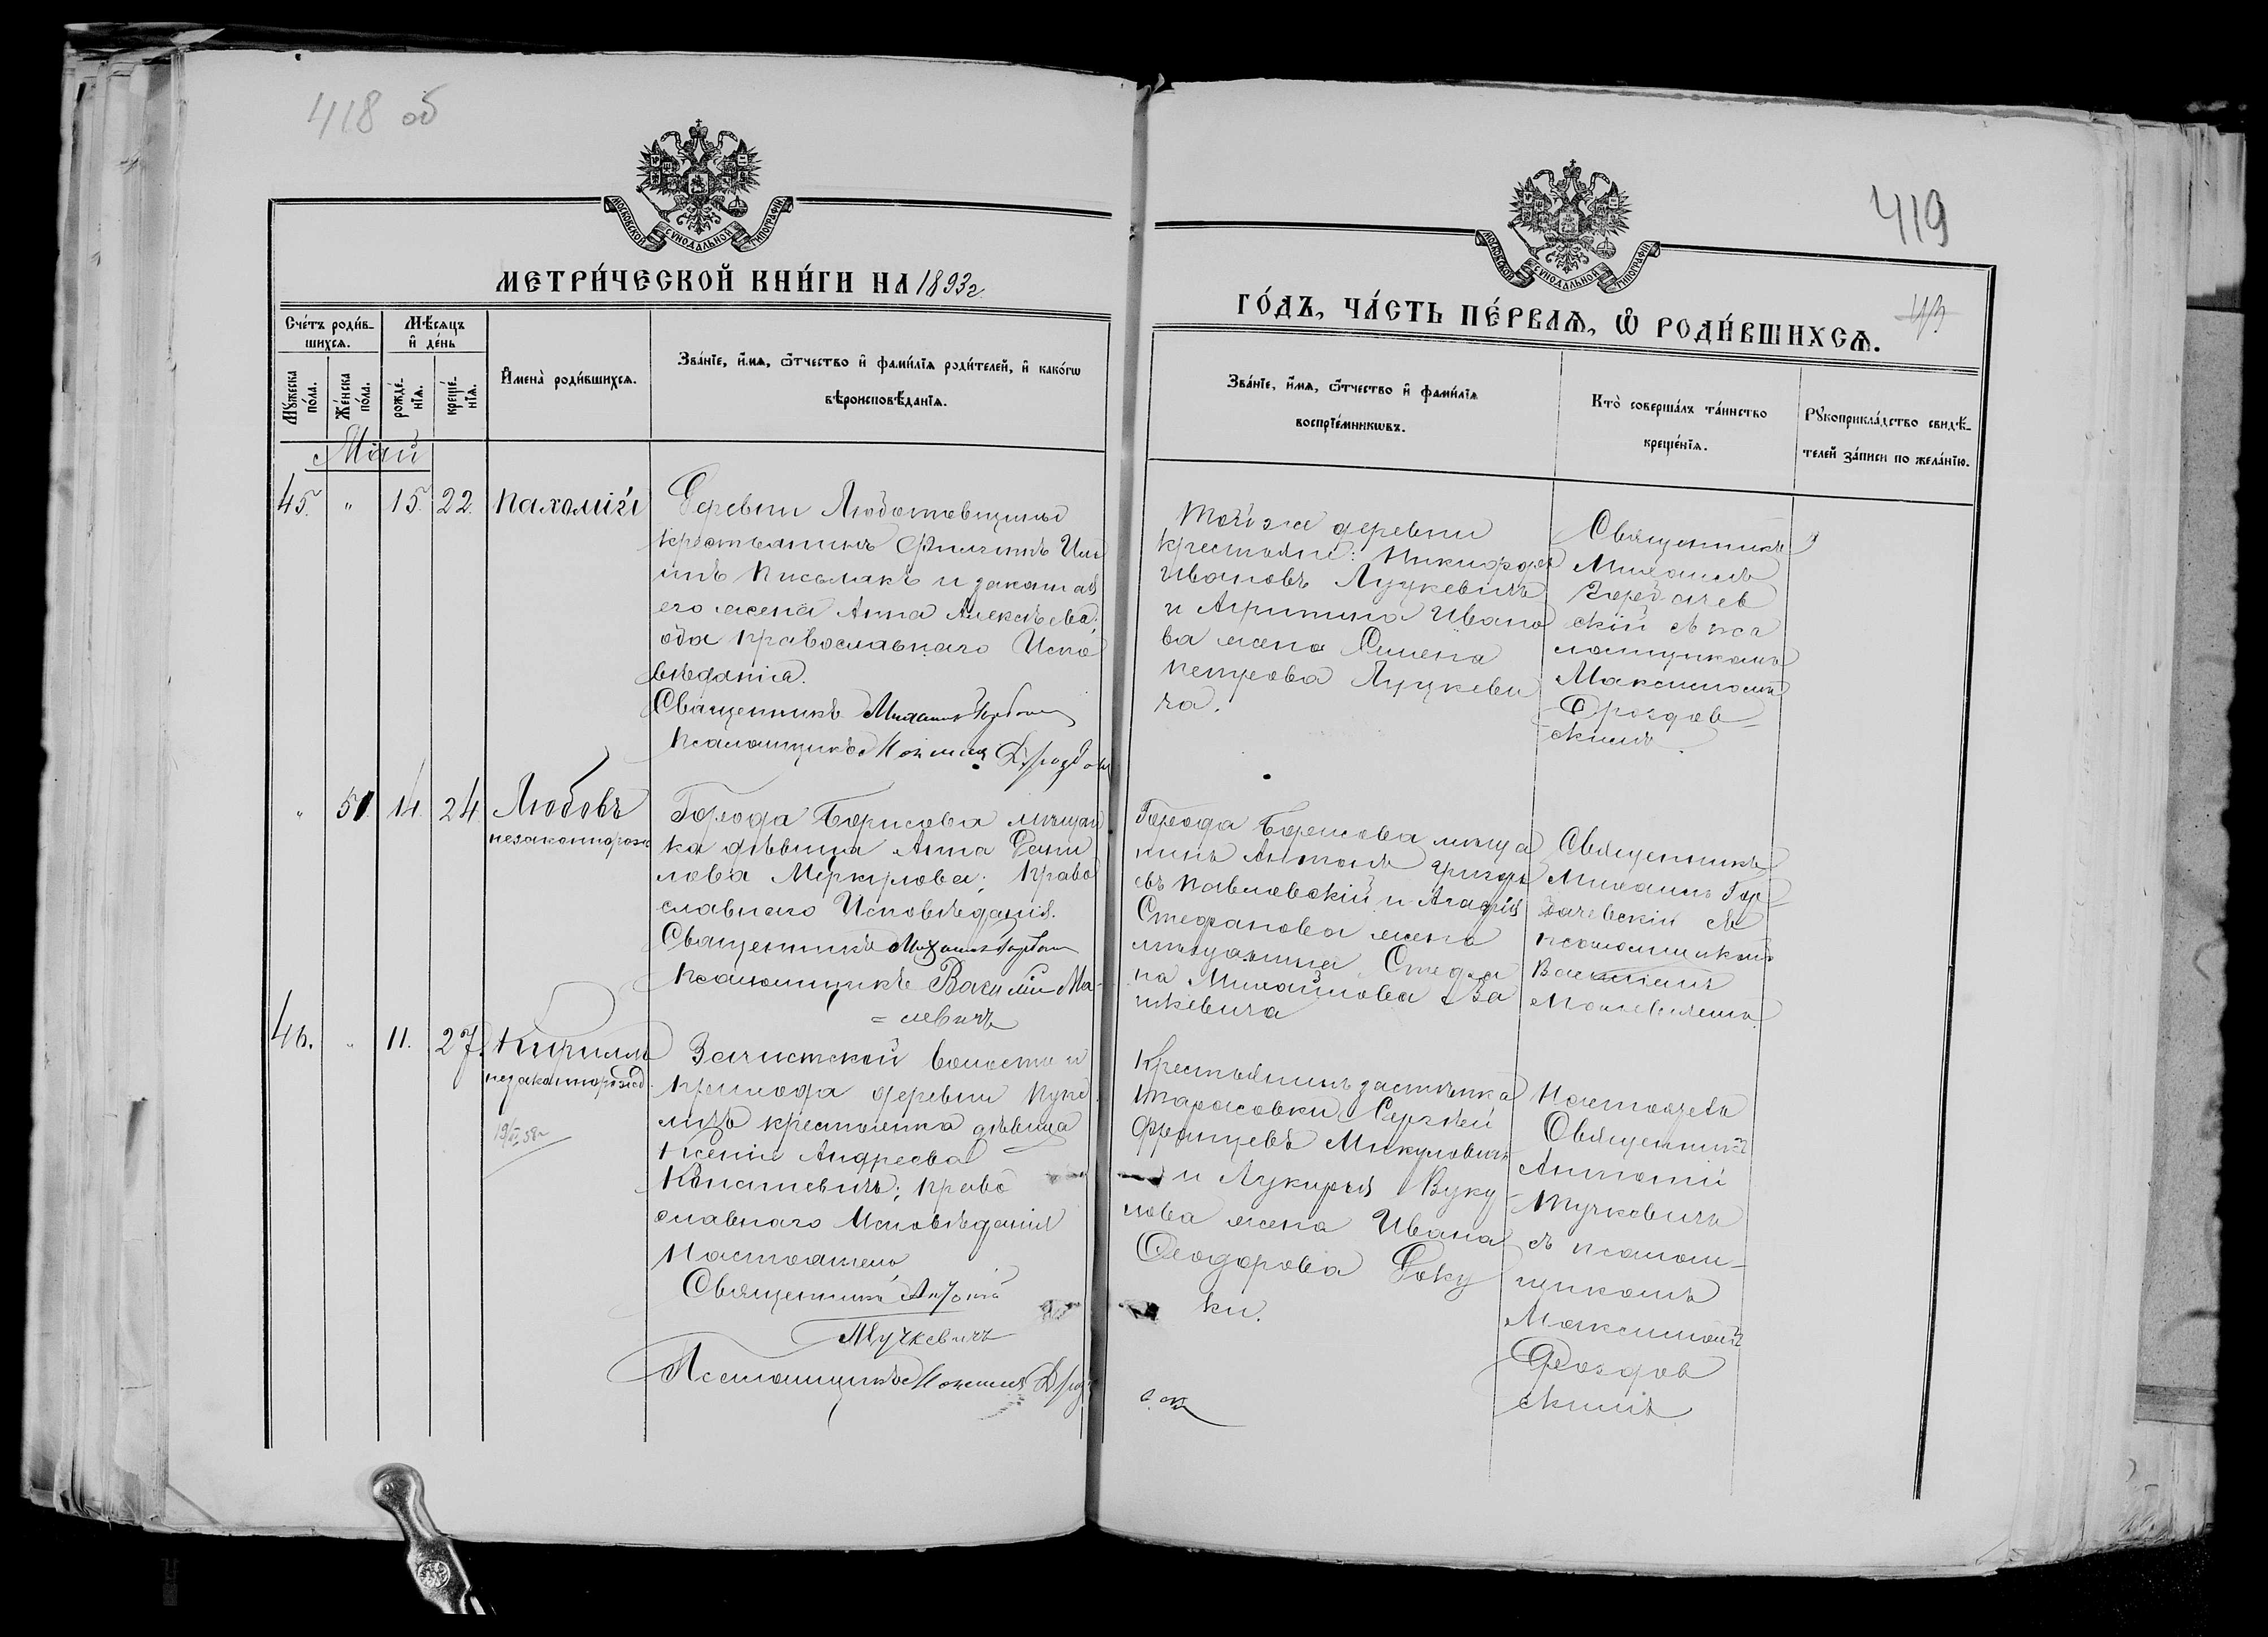 418 об
МОСКОВСКОЙ СУНОДАЛЬНОЙ ТИПОГРАФІИ
МЕТРИ́ЧЕСКОЙ КНИ́ГИ НА 1893 г.
Сче́тъ роди́в-
шихсѧ.
Мѣ́сѧцъ
и҆ де́нь
Мꙋ́жеска
по́ла.
Же́нска
по́ла.
рожде́-
нїѧ.
креще́-
нїѧ.
И҆мена̀ роди́вшихсѧ.
Зва́нїе, и҆́мѧ, ѻ҆́тчество и҆ фами́лїѧ роди́телей, и҆ како́гѡ
вѣроисповѣ́данїѧ.
Май
45. " 15. 22. Пахомій
Деревни Любатовщины
крестьянинъ Филиппъ Иль
инъ Письмакъ и законная
его жена Анна Алексѣева;
оба православнаго Испо
вѣданія.
Священникъ Михаилъ
Псаломщикъ Максим Дроздов
" 51. 14. 24. Любовь
незаконнорож
Города Борисова мѣщан
ка дѣвица Анна Дани
лова Меркулова; право
славнаго Исповѣданія.
Священникъ Михаилъ
Псаломщикъ Василій Ма-
=левичъ
46. " 11. 27. Кириллъ
незаконнорожд
19/VI 58 г
Зачистской волости и
прихода деревни Пупе
личъ крестьянка дѣвица
Ксенія Андреева
Игнатевичъ; право
славнаго Исповѣданія
Настоятель
Священникъ Антоній
Тучкевичъ
Псаломщикъ Максим Дроз
419
МОСКОВСКОЙ СУНОДАЛЬНОЙ ТИПОГРАФІИ
ГО́ДЪ, ЧА́СТЬ ПЕ́РВАѦ, Ѡ҆ РОДИ́ВШИХСѦ.
Зва́нїе, и҆́мѧ, ѻ҆́тчество и҆ фами́лїѧ
воспрїе́мникѡвъ.
Кто̀ соверша́лъ та́инство
креще́нїѧ.
Рꙋкоприкла́дство свидѣ́-
телей за́писи по жела́нїю.
Той же деревни
крестьяне: Никифоръ
Ивановъ Луцкевичъ
и Агрипина Ивано
ва жена Семена
Петрова Луцкеви
ча.
Священникъ
Михаилъ
Горбачев
скій съ пса
ломщикомъ
Максимомъ
Дроздов-
скимъ.
Города Борисова мѣща
нинъ Антонъ Григорь
евъ Павловскій и Агафія
Стефанова жена
мѣщанина Стефа
на Михайлова Ва
шкевича
Священникъ
Михаилъ Гор-
бачевскій съ
псаломщикомъ
Василіемъ
Малевичемъ.
Крестьянинъ застѣнка
Тарасовки Сергѣй
Францевъ Микуловичъ
и Лукерья Вуку
лова жена Ивана
Ѳеодорова Соку
ки.
Настоятель
Священникъ
Антоній
Тучкевичъ
съ псалом-
щикомъ
Максимомъ
Дроздов
скимъ